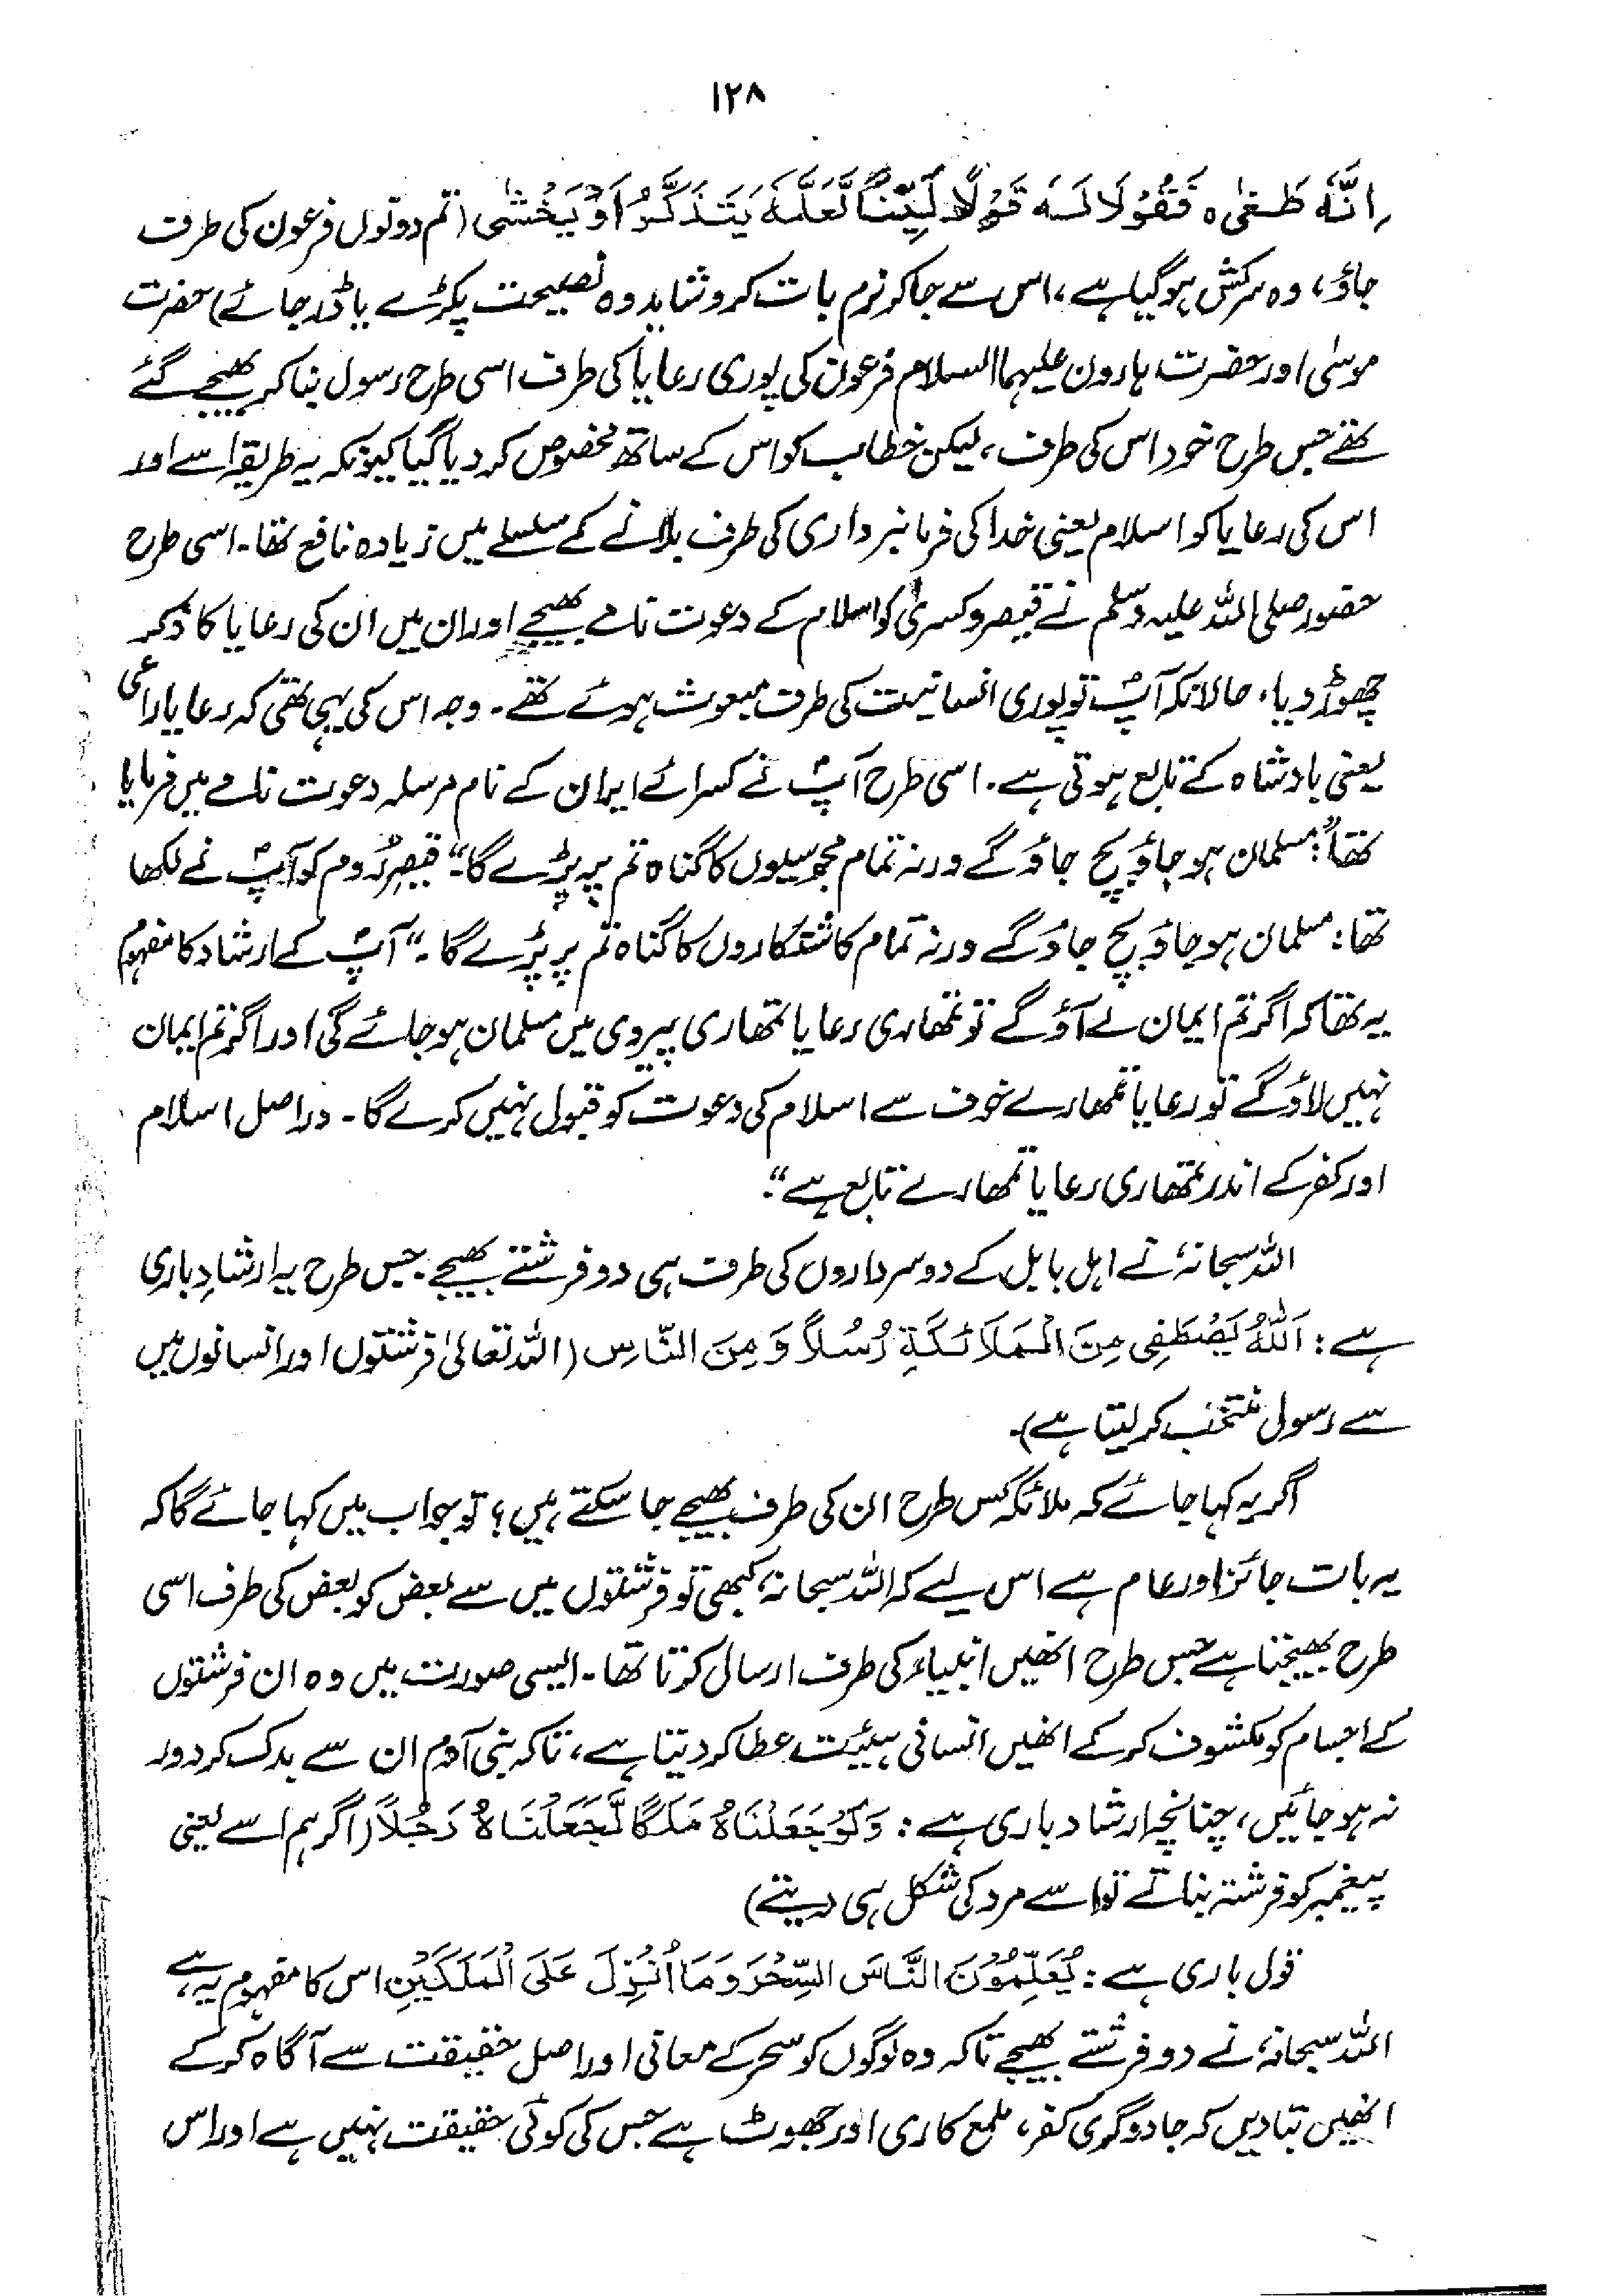 ۱۲۸
اِنَّهٗ طَغٰی ہ فَقُوْلَا لَـهٗ قَوْلًا لَّيِّنًا لَّعَلَّهٗ يَتَذَكَّرُ اَوْ يَخْشٰى (تم دونوں فرعون کی طرف
جاؤ، وہ سرکش ہوگیا ہے، اس سے جاکر نرم بات کرو شاید وہ نصیحت پکڑے یا ڈر جائے) حضرت
موسٰی اور حضرت ہارون علیہما السلام فرعون کی پوری رعایا کی طرف اسی طرح رسول بناکر بھیجے گئے
تھے جس طرح خود اس کی طرف، لیکن خطاب کو اس کے ساتھ مخصوص کر دیا گیا کیونکہ یہ طریقہ اسے اور
اس کی رعایا کو اسلام یعنی خدا کی فرمانبرداری کی طرف بلانے کے سلسلے میں زیادہ نافع تھا۔ اسی طرح
حضور صلی اللہ علیہ وسلم نے قیصر و کسریٰ کو اسلام کے دعوت نامے بھیجے اور ان میں ان کی رعایا کا ذکر
چھوڑ دیا، حالانکہ آپؐ تو پوری انسانیت کی طرف مبعوث ہوئے تھے۔ وجہ اس کی یہی تھی کہ رعایا راعی
یعنی بادشاہ کے تابع ہوتی ہے۔ اسی طرح آپؐ نے کسرائے ایران کے نام مرسلہ دعوت نامے میں فرمایا
تھا: "مسلمان ہو جاؤ بچ جاؤ گے ورنہ تمام مجوسیوں کا گناہ تم پر پڑے گا۔" قیصرِ روم کو آپؐ نے لکھا
تھا: مسلمان ہو جاؤ بچ جاؤ گے ورنہ تمام کاشتکاروں کا گناہ تم پر پڑے گا۔" آپؐ کے ارشاد کا مفہوم
یہ تھا کہ اگر تم ایمان لے آؤ گے تو تمھاری رعایا تمھاری پیروی میں مسلمان ہو جائے گی اور اگر تم ایمان
نہیں لاؤ گے تو رعایا تمھارے خوف سے اسلام کی دعوت کو قبول نہیں کرے گا۔ دراصل اسلام
اور کفر کے اندر تمھاری رعایا تمھارے تابع ہے"۔
اللہ سبحانہٗ نے اہل بابل کے دو سرداروں کی طرف ہی دو فرشتے بھیجے۔ جس طرح یہ ارشادِ باری
ہے: اَللّٰهُ يَصْطَفِى مِنَ الْمَلَائِكَةِ رُسُلًا وَ مِنَ النَّاسِ (اللہ تعالیٰ فرشتوں اور انسانوں میں
سے رسول منتخب کر لیتا ہے)۔
اگر یہ کہا جائے کہ ملائکہ کس طرح ان کی طرف بھیجے جا سکتے ہیں؟ تو جواب میں کہا جائے گا کہ
یہ بات جائز اور عام ہے اس لیے کہ اللہ سبحانہٗ کبھی تو فرشتوں میں سے بعض کو بعض کی طرف اسی
طرح بھیجتا ہے جس طرح انھیں انبیاء کی طرف ارسال کرتا تھا۔ ایسی صورت میں وہ ان فرشتوں
کے اجسام کو مکشوف کر کے انھیں انسانی ہیئت عطا کر دیتا ہے، تاکہ بنی آدم ان سے بدک کر دور
نہ ہو جائیں، چنانچہ ارشاد باری ہے: وَلَوْ جَعَلْنَاهُ مَلَكًا لَّجَعَلْنَاهُ رَجُلًا (اگر ہم اسے یعنی
پیغمبر کو فرشتہ بناتے تو اسے مرد کی شکل ہی دیتے)
قول باری ہے: يُعَلِّمُوْنَ النَّاسَ السِّحْرَ وَ مَا اُنْزِلَ عَلَى الْمَلَكَيْنِ اس کا مفہوم یہ ہے،
اللہ سبحانہٗ نے دو فرشتے بھیجے تاکہ وہ لوگوں کو سحر کے معانی اور اصل حقیقت سے آگاہ کر کے
انھیں بتا دیں کہ جادوگری کفر، ملمع کاری اور جھوٹ ہے جس کی کوئی حقیقت نہیں ہے اور اس